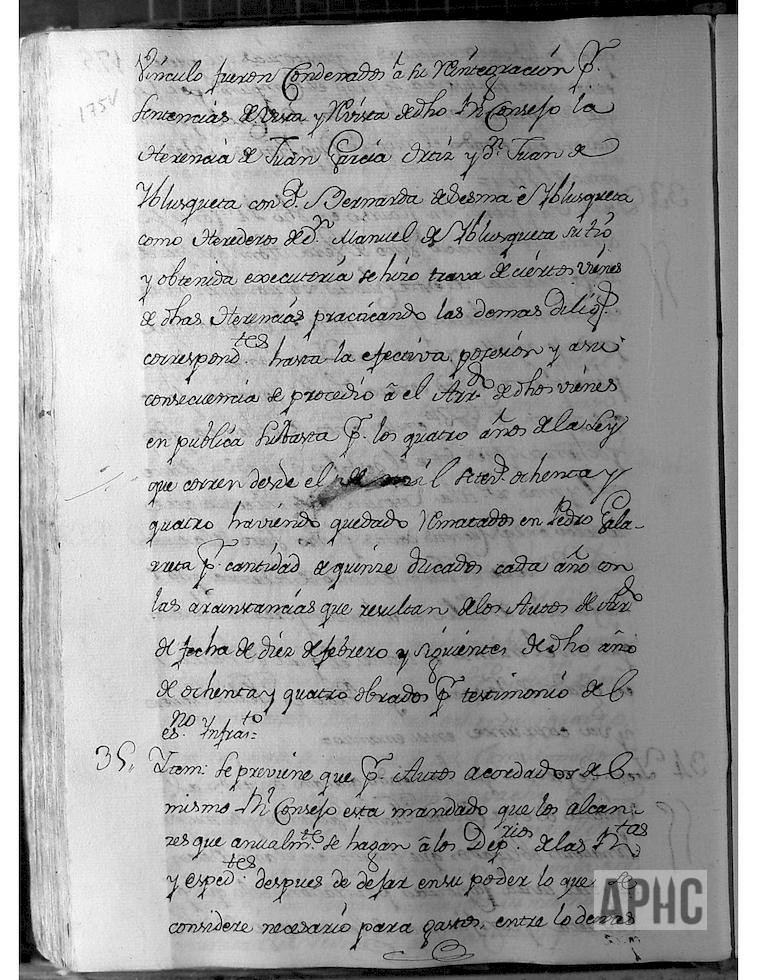 Vinculo fueron Condenados â su Reintegración Pr.
Sentencias de Vista y Revista de dho Rl. Consejo la
Herencia de Juan García Ortiz y Dn. Juan de
Yblusqueta con Da. Bernarda Ledesma é Yblusqueta
como Herederos de Dn. Manuel de Yblusqueta su tio
y obtenida executoria se hizo trava de ciertos vienes
de dhas Herencias practicando las demas Dilig.as
correspond.tes hasta la efectiva posesión y a su
consecuencia se procedio â el Arr.do de dhos vienes
en publica Subasta Pr. los quatro años de la Ley
que corren desde el de mil Setezs. ochenta y
quatro haviendo quedado Rematados en Pedro Gala-
rreta Pr. cantidad de quinze Ducados cada año con
las circunstancias que resultan de los Autos de Arr.do
de fecha de diez de febrero y siguientes de dho año
de ochenta y quatro obrados Pr. testimonio de el
es.no Infrascto=
35. Ytem: Se previene que Pr. Autos acordados de el
mismo Rl. Consejo esta mandado que los alcan-
zes que anualm.te se hagan â los Dep.rios de las Rtas
y esped.tes despues de dejar en su poder lo que se
considere necesario para gastos, entre lo demas
175v
APHC